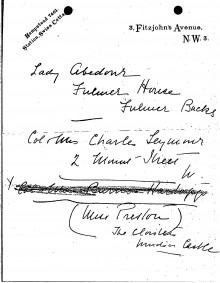 Hampstead 7401.
Station, Swiss Cottage
3, Fitzjohn's Avenue,
N.W.3.
Lady Aberdour
Fulmer House
Fulmer Bucks
Col & Mrs Charles Seymour
2 Street
W
(Miss Preston)
The Cloisters
Windsor Castle